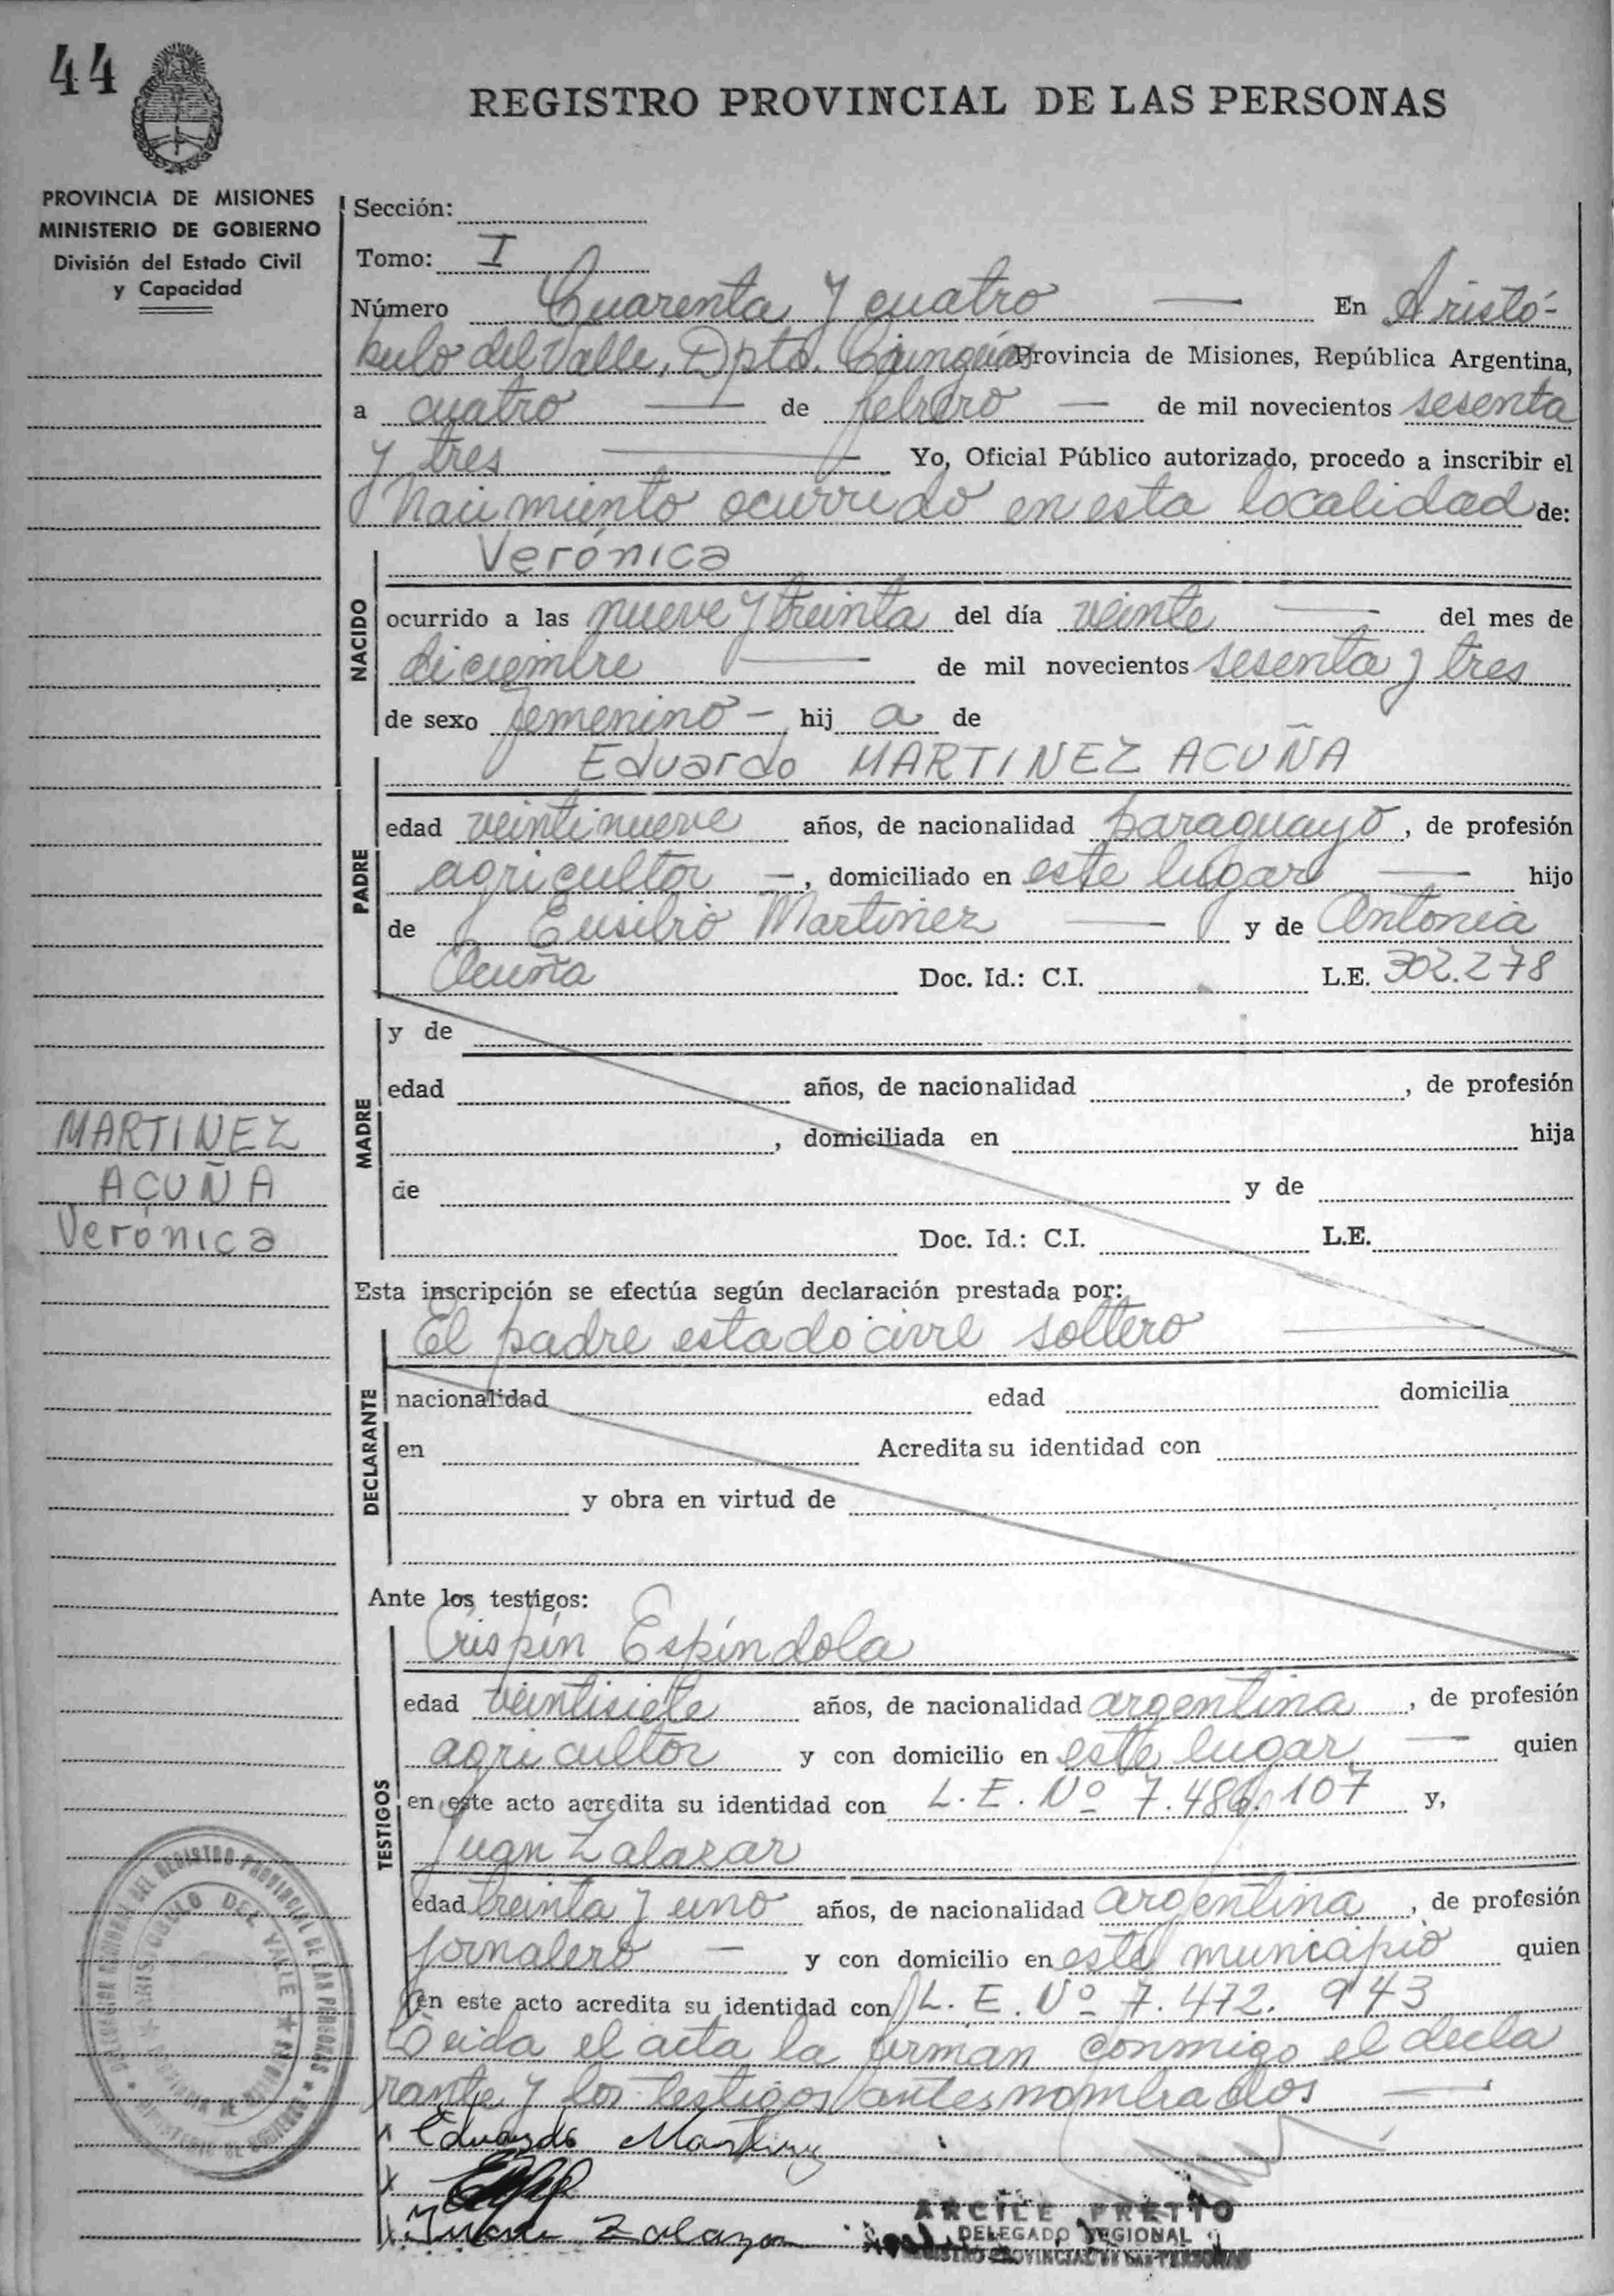 44
REGISTRO PROVINCIAL DE LAS PERSONAS
PROVINCIA DE MISIONES
MINISTERIO DE GOBIERNO
División del Estado Civil
y Capacidad
Sección:
Tomo: I
Número Cuarenta y cuatro En Aristó-
bulo del Valle, Dpto. Cainguás Provincia de Misiones, República Argentina,
a cuatro de febrero de mil novecientos sesenta
y tres Yo, Oficial Público autorizado, procedo a inscribir el
Nacimiento ocurrido en esta localidad de:
NACIDO
Verónica
ocurrido a las nueve y treinta del día veinte del mes de
diciembre de mil novecientos sesenta y tres
de sexo femenino - hij a de
PADRE
Eduardo MARTINEZ ACUÑA
edad veintinueve años, de nacionalidad paraguayo, de profesión
agricultor -, domiciliado en este lugar hijo
de Eusebio Martinez y de Antonia
Acuña Doc. Id.: C.I. L.E. 302.278
MADRE
y de
edad años, de nacionalidad , de profesión
, domiciliada en hija
de y de
Doc. Id.: C.I. L.E.
MARTINEZ
ACUÑA
Verónica
Esta inscripción se efectúa según declaración prestada por:
DECLARANTE
El padre estado civil soltero
nacionalidad edad domicilia
en Acredita su identidad con
y obra en virtud de
Ante los testigos:
TESTIGOS
Crispín Espíndola
edad veintisiete años, de nacionalidad argentina, de profesión
agricultor y con domicilio en este lugar quien
en este acto acredita su identidad con L.E. Nº 7.486.107 y,
Juan Zalazar
edad treinta y uno años, de nacionalidad argentina, de profesión
jornalero - y con domicilio en este municipio quien
en este acto acredita su identidad con L.E. Nº 7.472.943
Leida el acta la firman conmigo el decla
rante y los testigos antes nombrados
Eduardo Martinez
Juan Zalazar
ARCILE PRETTO
DELEGADO REGIONAL
REGISTRO PROVINCIAL DE LAS PERSONAS
DELEGACION REGIONAL DEL REGISTRO PROVINCIAL DE LAS PERSONAS
ARISTOBULO DEL VALLE
MINISTERIO DE GOBIERNO